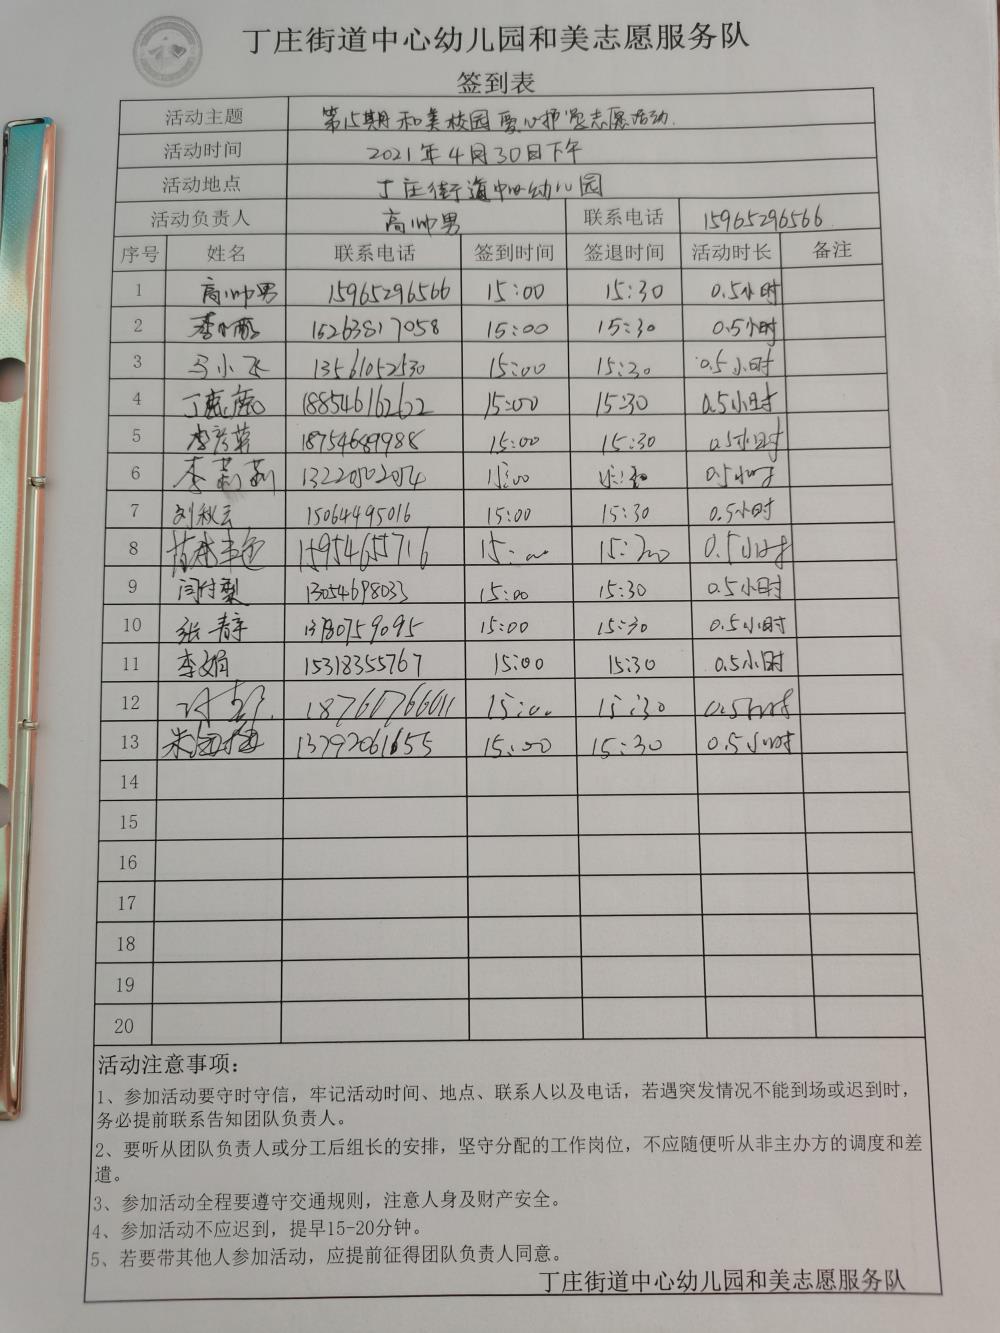 丁庄街道中心幼儿园和美志愿服务队
签到表
活动主题 第15期和美校园爱心护学志愿活动.
活动时间 2021年4月30日下午
活动地点 丁庄街道中心幼儿园
活动负责人 高帅男 联系电话 15965296566
序号 姓名 联系电话 签到时间 签退时间 活动时长 备注
1 高帅男 15965296566 15:00 15:30 0.5小时
2 15263817058 15:00 15:30 0.5小时
3 马小飞 13561052530 15:00 15:30 0.5小时
4 18854616262 15:00 15:30 0.5小时
5 李彦菊 18754689988 15:00 15:30 0.5小时
6 李莉莉 13220502054 15:00 15:30 0.5小时
7 刘秋云 15064495016 15:00 15:30 0.5小时
8 15954655716 15:00 15:30 0.5小时
9 闫付梨 13054698033 15:00 15:30 0.5小时
10 张静 15:00 15:30 0.5小时
11 李娟 15318355767 15:00 15:30 0.5小时
12 18760766011 15:00 15:30 0.5小时
13 13792061655 15:00 15:30 0.5小时
14
15
16
17
18
19
20
活动注意事项：
1、参加活动要守时守信，牢记活动时间、地点、联系人以及电话，若遇突发情况不能到场或迟到时，
务必提前联系告知团队负责人。
2、要听从团队负责人或分工后组长的安排，坚守分配的工作岗位，不应随便听从非主办方的调度和差
遣。
3、参加活动全程要遵守交通规则，注意人身及财产安全。
4、参加活动不应迟到，提早15-20分钟。
5、若要带其他人参加活动，应提前征得团队负责人同意。
丁庄街道中心幼儿园和美志愿服务队